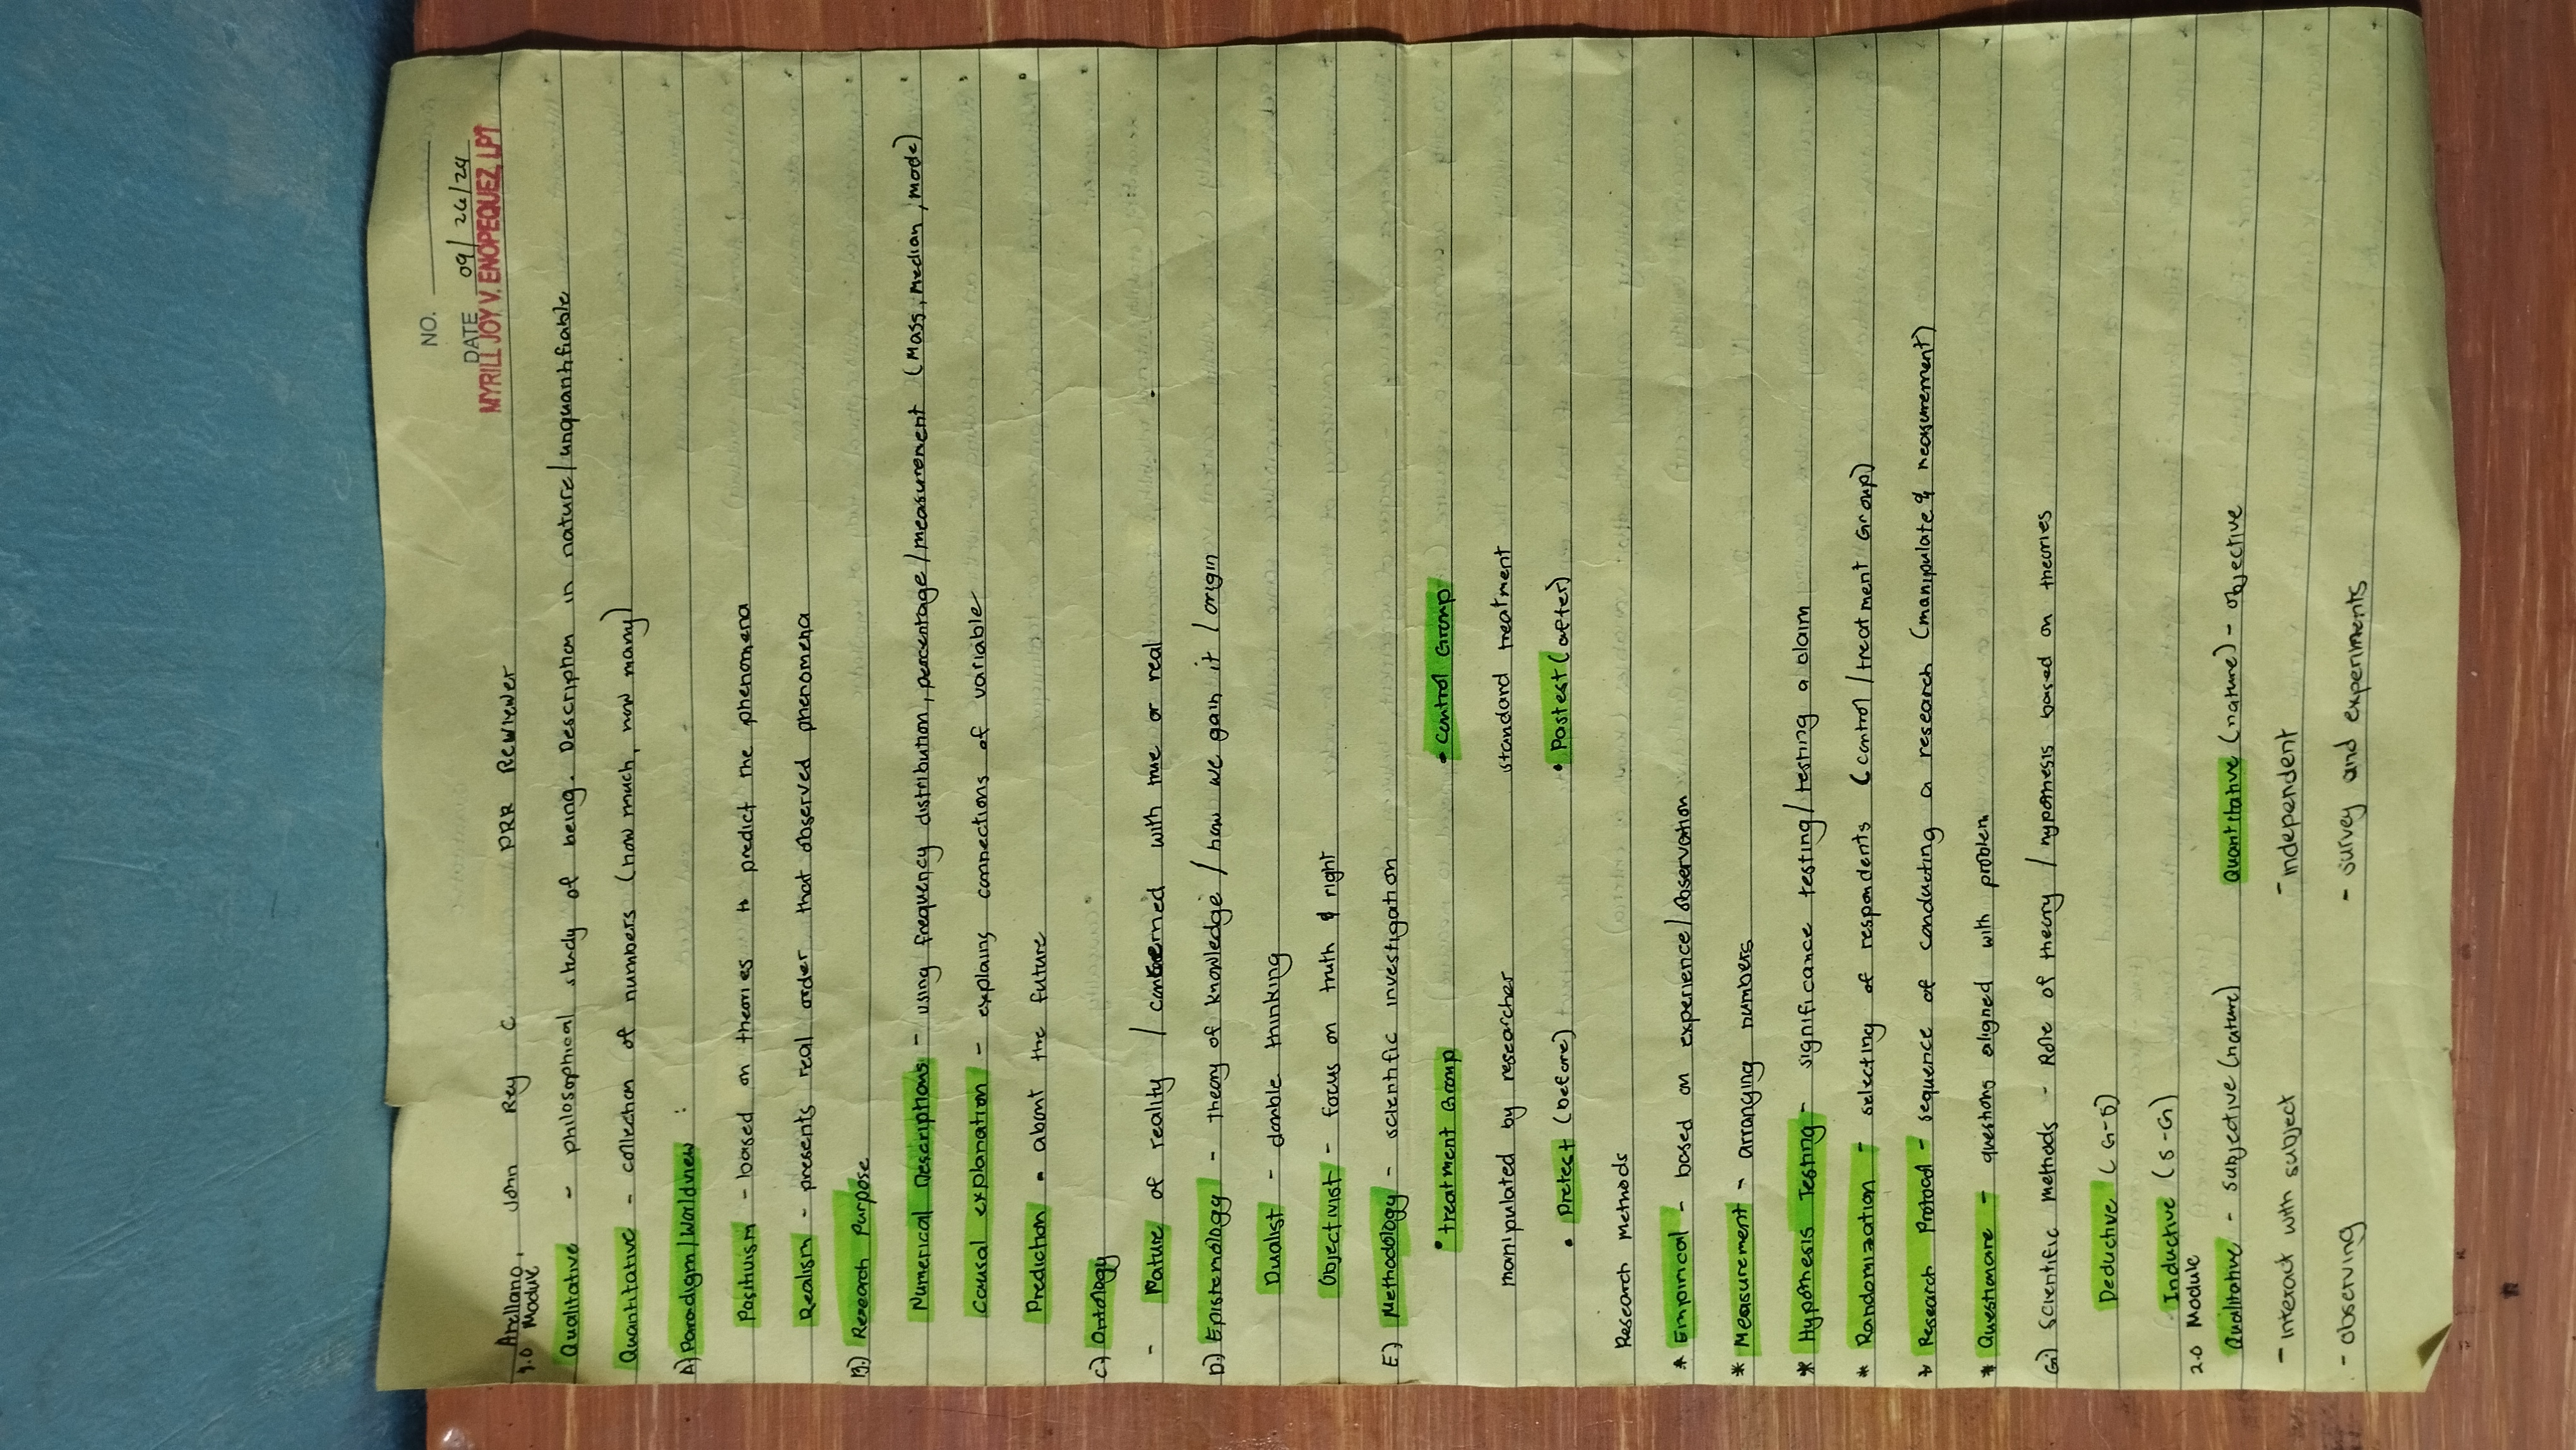 NO.
DATE 09/26/24
MYRILL JOY V. ENOPEQUEZ, LPT
Arellano, John Rey C PRR Rewiewer
1.0 Module
Qualitative - philosophical study of being. Description in nature/unquantifiable
Quantitative - collection of numbers (how much, how many)
A) Paradigm/Worldview :
Positivism - based on theories to predict the phenomena
Realism - presents real order that observed phenomena
B.) Research Purpose
Numerical Descriptions - using frequency distribution, percentage/measurement (Mass, median, mode)
Causal explanation - explains connections of variable
Prediction - about the future
C.) Ontology
- Nature of reality / concerned with true or real
D.) Epistemology - theory of knowledge / how we gain it / origin
Dualist - double thinking
Objectivist - focus on truth & right
E.) Methodology - scientific investigation
• treatment Group • Control Group
manipulated by researcher standard treatment
• Pretest (before) • Postest (after)
Research Methods
* Empirical - based on experience/observation
* Measurement - arranging numbers
* Hypothesis Testing - significance testing / testing a claim
* Randomization - selecting of respondents (control / treatment Group)
* Research Protocol - sequence of conducting a research (manipulate & measurement)
* Questionare - questions aligned with problem
G.) Scientific methods - Role of theory / hypothesis based on theories
Deductive (G-S)
Inductive (S-G)
2.0 Module
Qualitative - subjective (nature) Quantitative (nature) - objective
- interact with subject - independent
- observing - survey and experiments